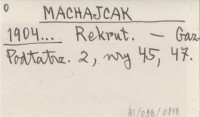 0
MACHAJCAK
1904... Rekrut. — Gaz.
Podtatrz. 2, nry 45, 47.